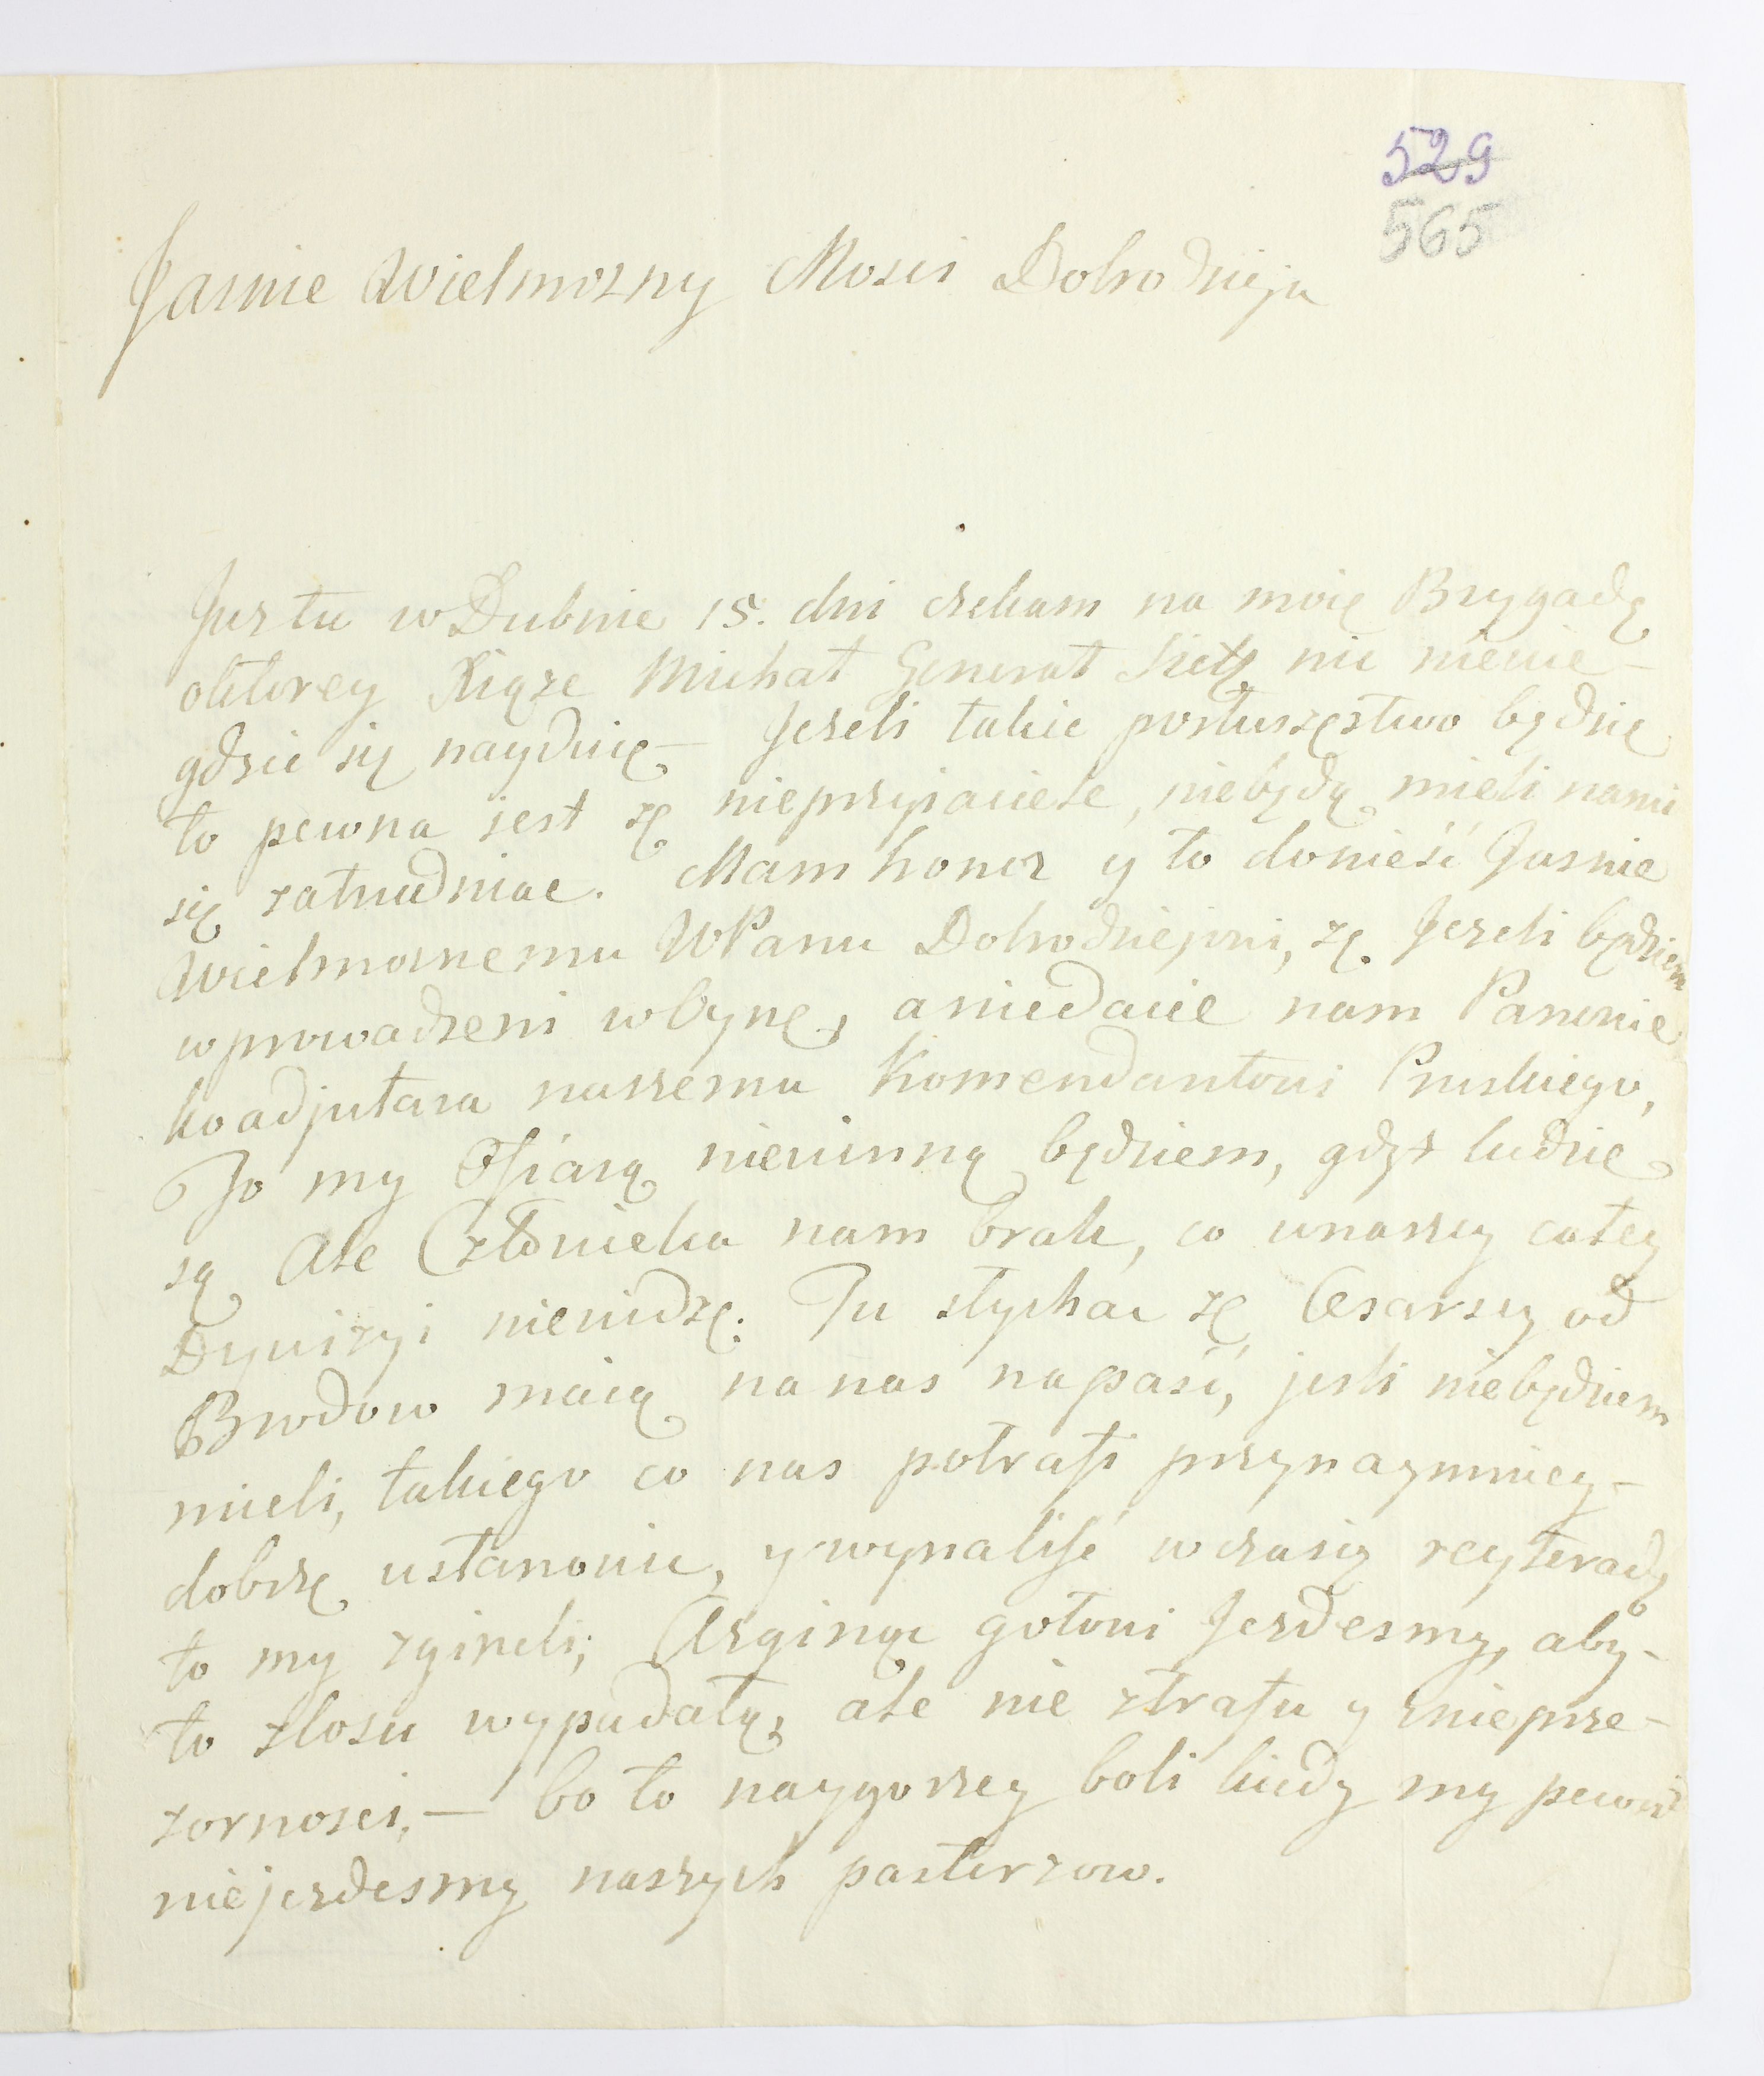 529
565
Jasnie Wielmozny Mosci Dobrodzieju
Juz tu w Dubnie 15. dni czekam na moię Brygadę
oktorey Xiąze Michał Generał nic niewie —
gdzie się nayduię — Jezeli takie posłuszęstwo będzie
to pewna jest zę nieprzyiaciele, niebędą mieli nami
się zatrudniac. Mam honor y to donieść Jasnie
Wielmoznemu WPanu Dobrodziejowi, zę Jezeli będziem
wprowadzeni wbynę, a niedacie nam Panowie
koadjutara naszemu Komendantowi Pruskiego,
To my Ofiarą niewinną będziem, gdyz ludzie
są Ale Człowieka nam brak, co wnaszy całey
Dywizyi niewidzę. Tu słychac zę Cesarscy od
Brodow maią na nas napaść, jesli niebędziem
mieli, takiego co nas potrafi przynaymniey —
dobrzę ustanowic, y wynaliść wczasię reyterady
to my zgineli; Azginąc gotowi Jezdesmy, aby —
to zlosu wypadałą, ale nie ztrafu y znieprze —
zornosci, — bo to naygorzey boli kiedy my pewni
niejezdesmy naszych pasterzow.